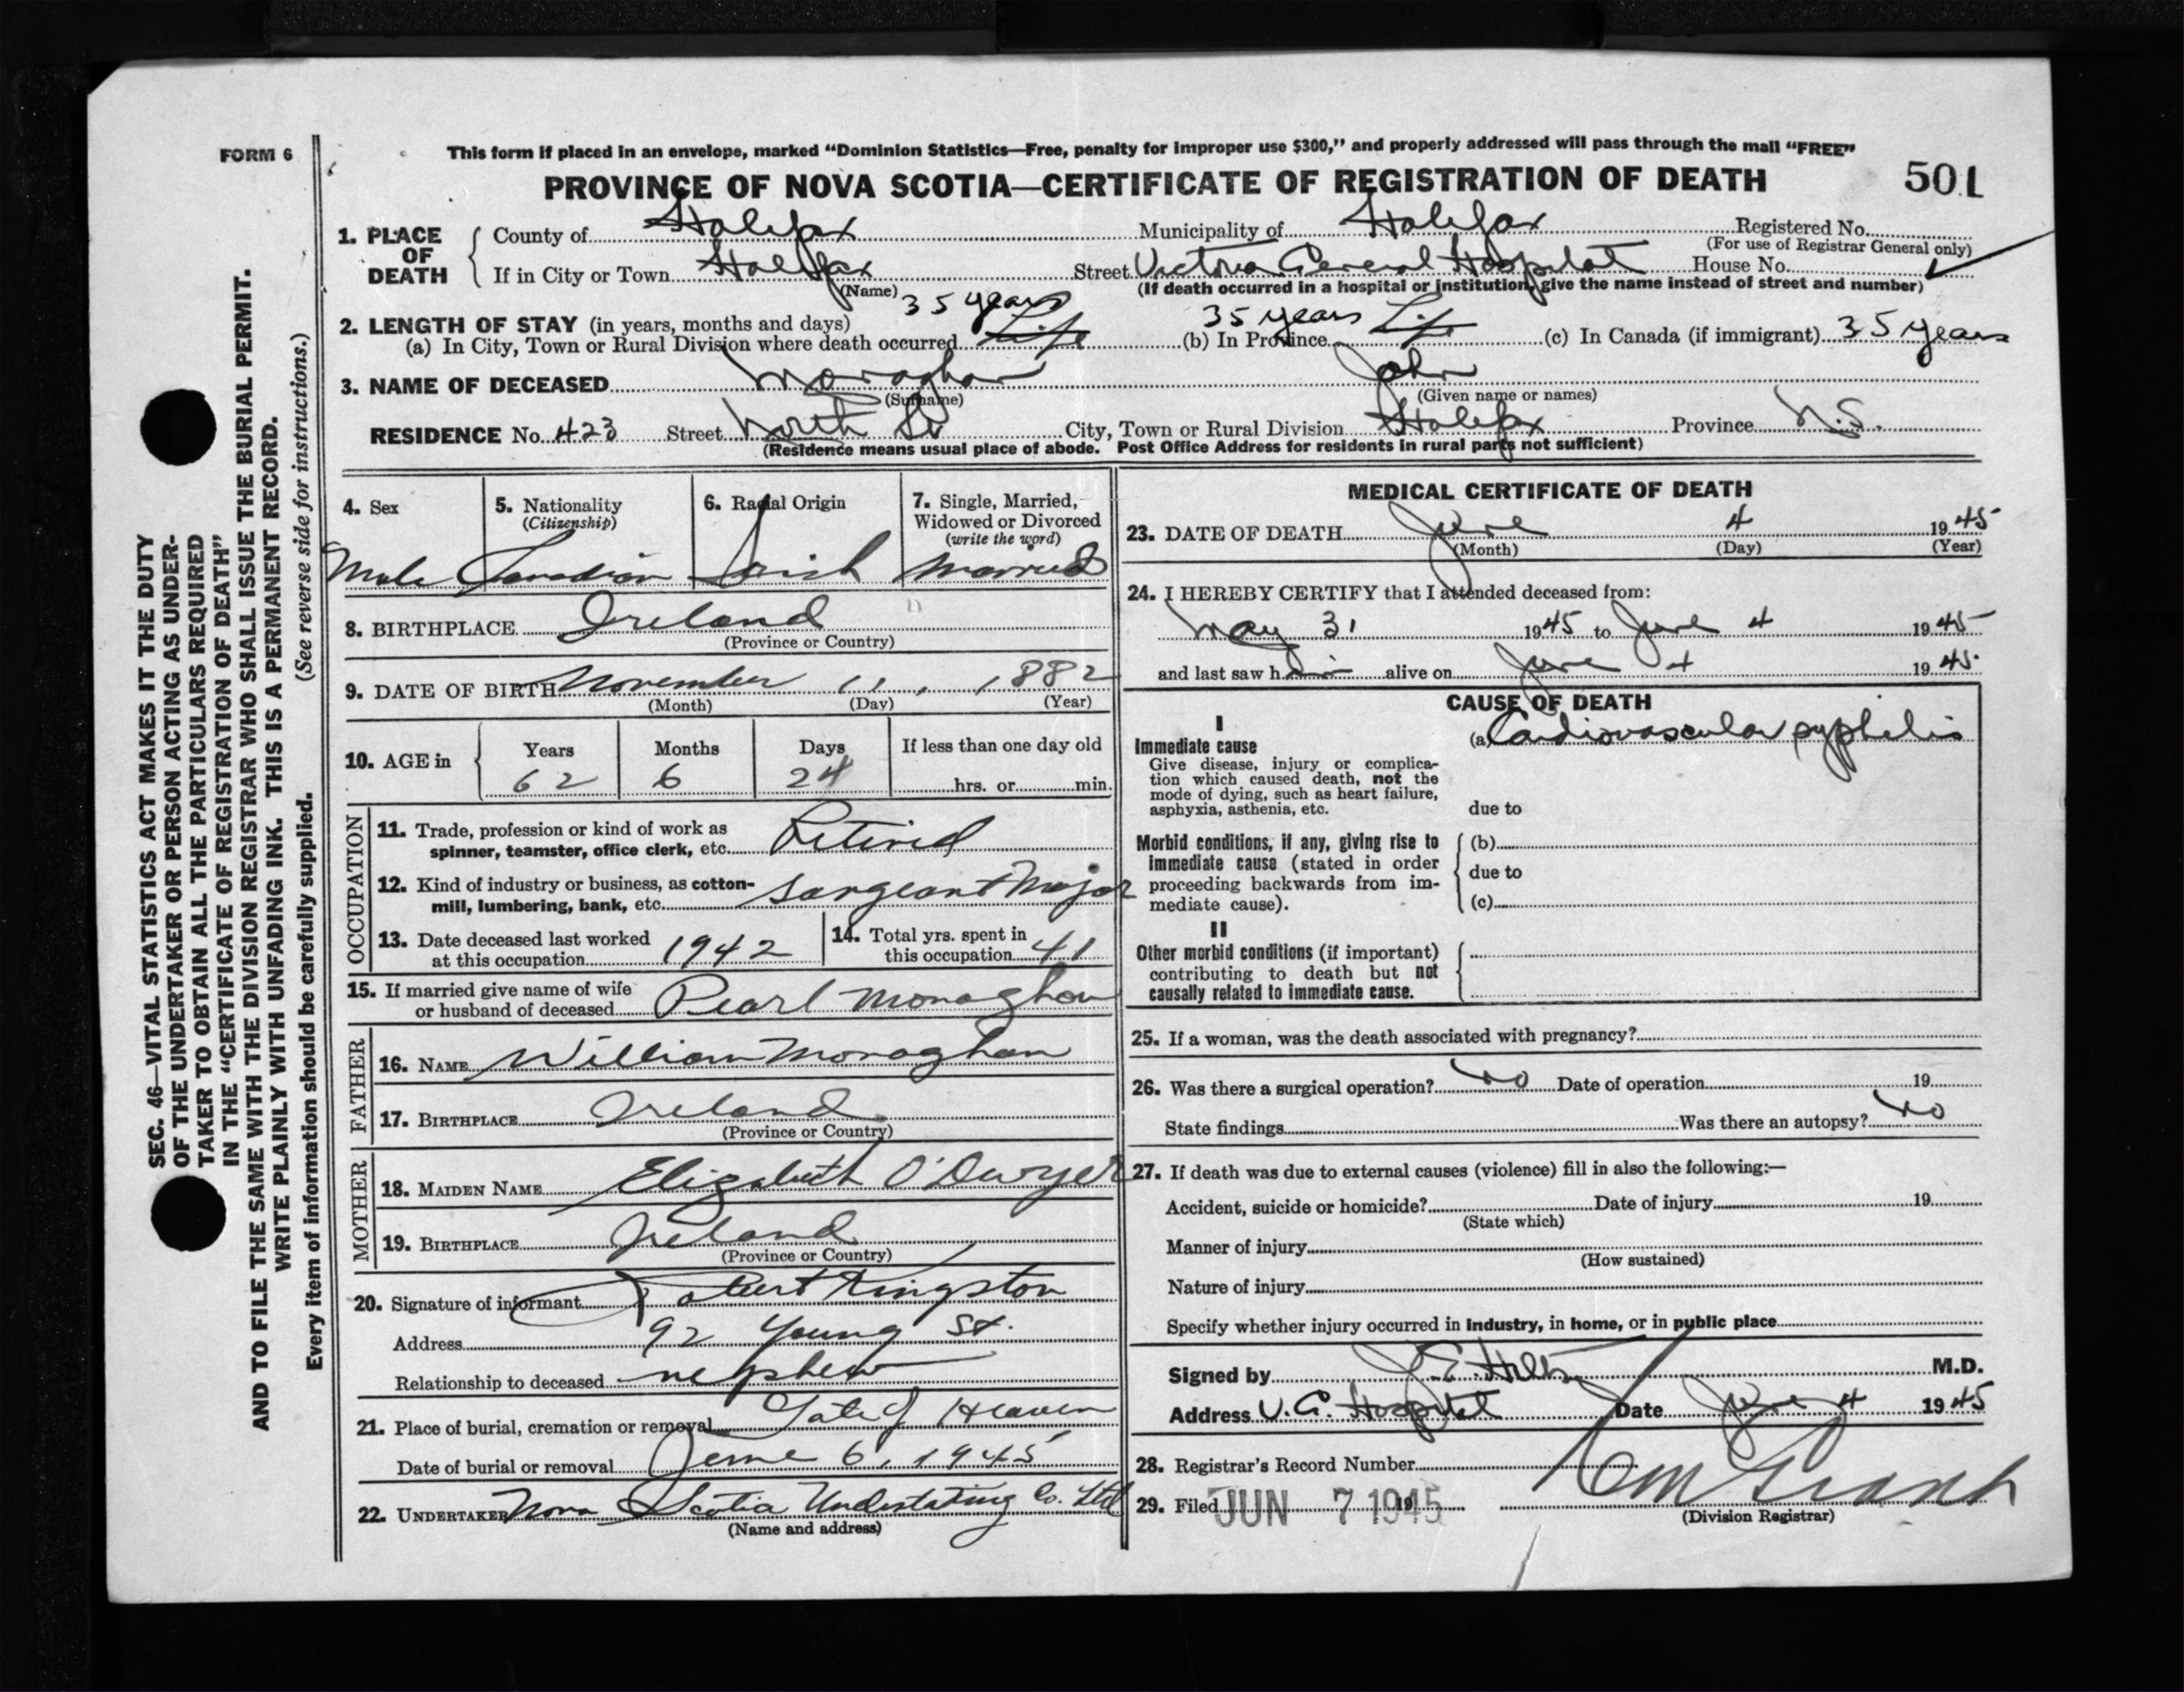 FORM 6
This form if placed in an envelope, marked “Dominion Statistics—Free, penalty for improper use $300,” and properly addressed will pass through the mail “FREE”
PROVINCE OF NOVA SCOTIA—CERTIFICATE OF REGISTRATION OF DEATH 501
1. PLACE OF DEATH
County of Halifax Municipality of Halifax Registered No.
(For use of Registrar General only)
If in City or Town Halifax Street Victoria General Hospital House No.
(Name) (If death occurred in a hospital or institution, give the name instead of street and number)
2. LENGTH OF STAY (in years, months and days) 35 years 35 years
(a) In City, Town or Rural Division where death occurred Life (b) In Province Life (c) In Canada (if immigrant) 35 years
3. NAME OF DECEASED Monaghan John
(Surname) (Given name or names)
RESIDENCE No. 423 Street North St City, Town or Rural Division Halifax Province N.S.
(Residence means usual place of abode. Post Office Address for residents in rural parts not sufficient)
4. Sex 5. Nationality (Citizenship) 6. Racial Origin 7. Single, Married, Widowed or Divorced (write the word)
Male Canadian Irish Married
8. BIRTHPLACE Ireland
(Province or Country)
9. DATE OF BIRTH November 11, 1882
(Month) (Day) (Year)
10. AGE in Years Months Days If less than one day old
62 6 24 hrs. or min.
OCCUPATION
11. Trade, profession or kind of work as
spinner, teamster, office clerk, etc. Retired
12. Kind of industry or business, as cotton-
mill, lumbering, bank, etc. Sargeant Major
13. Date deceased last worked
at this occupation 1942
14. Total yrs. spent in
this occupation 41
15. If married give name of wife
or husband of deceased Pearl Monaghan
FATHER
16. NAME William Monaghan
17. BIRTHPLACE Ireland
(Province or Country)
MOTHER
18. MAIDEN NAME Elizabeth O'Dwyer
19. BIRTHPLACE Ireland
(Province or Country)
20. Signature of informant Robert Kingston
Address 92 Young St.
Relationship to deceased nephew
21. Place of burial, cremation or removal Gate of Heaven
Date of burial or removal June 6, 1945
22. UNDERTAKER Nova Scotia Undertaking Co. Ltd
(Name and address)
MEDICAL CERTIFICATE OF DEATH
23. DATE OF DEATH June 4 1945
(Month) (Day) (Year)
24. I HEREBY CERTIFY that I attended deceased from:
May 31 1945 to June 4 1945
and last saw him alive on June 4 1945
CAUSE OF DEATH
I
Immediate cause (a) Cardiovascular syphilis
Give disease, injury or complica-
tion which caused death, not the
mode of dying, such as heart failure,
asphyxia, asthenia, etc. due to
Morbid conditions, if any, giving rise to (b)
immediate cause (stated in order
proceeding backwards from im- due to
mediate cause). (c)
II
Other morbid conditions (if important)
contributing to death but not
causally related to immediate cause.
25. If a woman, was the death associated with pregnancy?
26. Was there a surgical operation? No Date of operation 19
State findings Was there an autopsy? No
27. If death was due to external causes (violence) fill in also the following:—
Accident, suicide or homicide? Date of injury 19
(State which)
Manner of injury
(How sustained)
Nature of injury
Specify whether injury occurred in industry, in home, or in public place
Signed by J.E. M.D.
Address V.G. Hospital Date June 4 1945
28. Registrar's Record Number
29. Filed JUN 7 1945 19
(Division Registrar)
SEC. 46—VITAL STATISTICS ACT MAKES IT THE DUTY
OF THE UNDERTAKER OR PERSON ACTING AS UNDER-
TAKER TO OBTAIN ALL THE PARTICULARS REQUIRED
IN THE “CERTIFICATE OF REGISTRATION OF DEATH”
AND TO FILE THE SAME WITH THE DIVISION REGISTRAR WHO SHALL ISSUE THE BURIAL PERMIT.
WRITE PLAINLY WITH UNFADING INK. THIS IS A PERMANENT RECORD.
Every item of information should be carefully supplied. (See reverse side for instructions.)